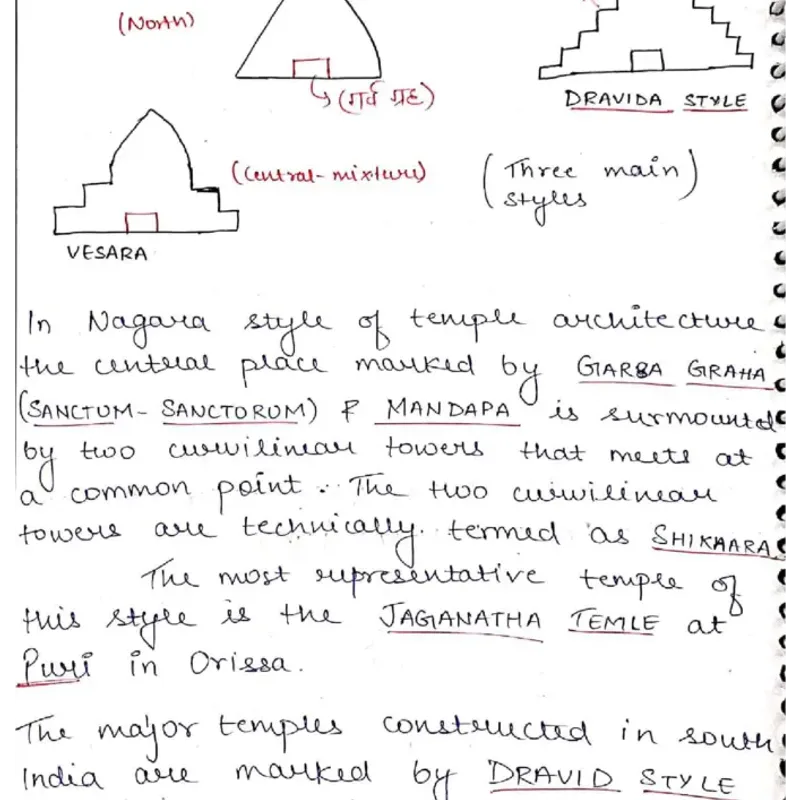 (North)
(गर्व ग्रह)
DRAVIDA STYLE
(Central-mixture)
(Three main
styles)
VESARA
In Nagara style of temple architecture
the central place marked by GARBA GRAHA
(SANCTUM-SANCTORUM) & MANDAPA is surmounted
by two curvilinear towers that meets at
a common point. The two curvilinear
towers are technically termed as SHIKAARA
The most representative temple of
this style is the JAGANATHA TEMLE at
Puri in Orissa.
The major temples constructed in south
India are marked by DRAVID STYLE